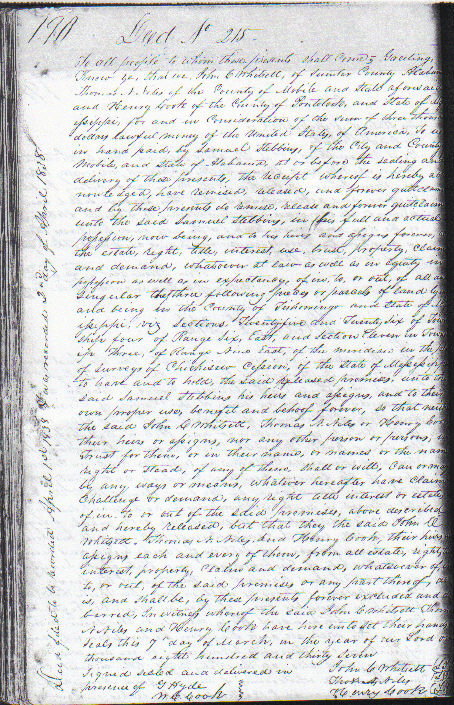 190 Deed No 215.
To all people to whom these presents shall Come, Greeting,
Know ye, that we John C Whitsett, of Sumter County Alabam
Thomas N. Niles of the County of Mobile and State aforesaid
and Henry Cook of the County of Pontotock, and State of
issippi, for and in Consideration of the Sum of three thous
dollars lawful money of the United States, of America, to us
in hand paid, by Samuel Stebbins, of the City and County
Mobile, and State of Alabama, at or before the sealing and
delivery of these presents, the receipt whereof is hereby ac
nowledged, have remised, released, and forever quitclaim
and in these presents do remise, release and forever quitclaim
unto the said Samuel Stebbins, in full and actual
possession, now being, and to his heirs and assigns forever,
the estate, right, title, interest, use, trust, property, claim
and demand, whatsoever at law as well as in Equity in
possession as well as in expectancy, of, in, to, or out, of all and
singular the three following pieces or parcels of land ly
and being in the County of Tishomingo and State of
issippi, viz Sections. Twenty five and Twenty Six of Town
ship four of Range Six, East, and Section Eleven in Town
ip Three, of Range Nine East, of the meridian in the
of surveys of Chickesaw Cession, of the State of Mississippi
to have and to hold, the said released premises, unto the
said Samuel Stebbins his heirs and assigns, and to their
own proper use, benefit and behoof forever, so that neit
the said John C Whitsett, Thomas N. Niles or Henry Cook
their heirs or assigns, nor any other person or persons, in
trust for them, or in their name, or names or the name
right or stead, of any of them, shall or will, Can or may
by any ways or means, whatever hereafter have claim
Challenge or demand, any right title interest or estate
of in, to or out of the said premises, above described
and hereby released, but that they the said John C
Whitsett, Thomas N. Niles, and Henry Cook, their heirs
assigns each and every of them, from all estate, right,
interest, property, claim and demand, whatsoever of
to, or out, of the said premises or any part thereof, are
is, and shall be, by these presents forever excluded and
berred, In witness whereof the said John C Whitsett Thom
N. Niles and Henry Cook have here unto set their hands
seals this 7th day of March, in the year of our Lord o
thousand eight hundred and thirty Seven
Signed sealed and delivered in John C Whitsett
presence of G Hyde Thomas N. Niles
W. C. Cook Henry Cook
Deed filed to be recorded April 1st 1838 & was recorded 2nd day of April 1838